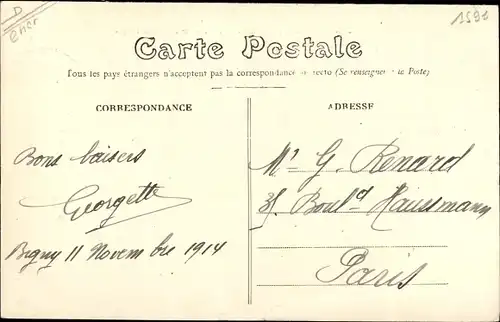 1591
Carte Postale
Tous les pays étrangers n'acceptent pas la correspondance recto (Se renseigner Poste)
CORRESPONDANCE
ADRESSE
Bons baisers
Georgette
Bigny 11 Novembre 1914
Mr G. Renard
Bould Haussmann
Paris